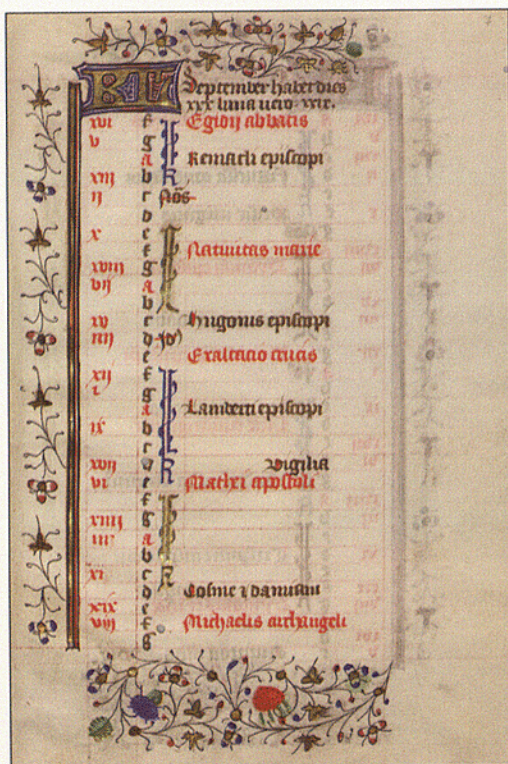 KL September habet dies
xxx luna vero xxix.
xvi f Egidij abbatis
v g
a Remacli episcopi
xiii b
ii c Nōs
d
x e
f Natiuitas marie
xviii g
vij a
b
xv c Hugonis episcopi
iiij d Jd'
e Exaltacio crucis
xij f
i g
a Lamberti episcopi
ix b
c
xvij d Vigilia
vi e Mathei apostoli
f
xiiij g
iij a
b
xi c
d Cosme &
xix e
viij f Michaelis archangeli
g